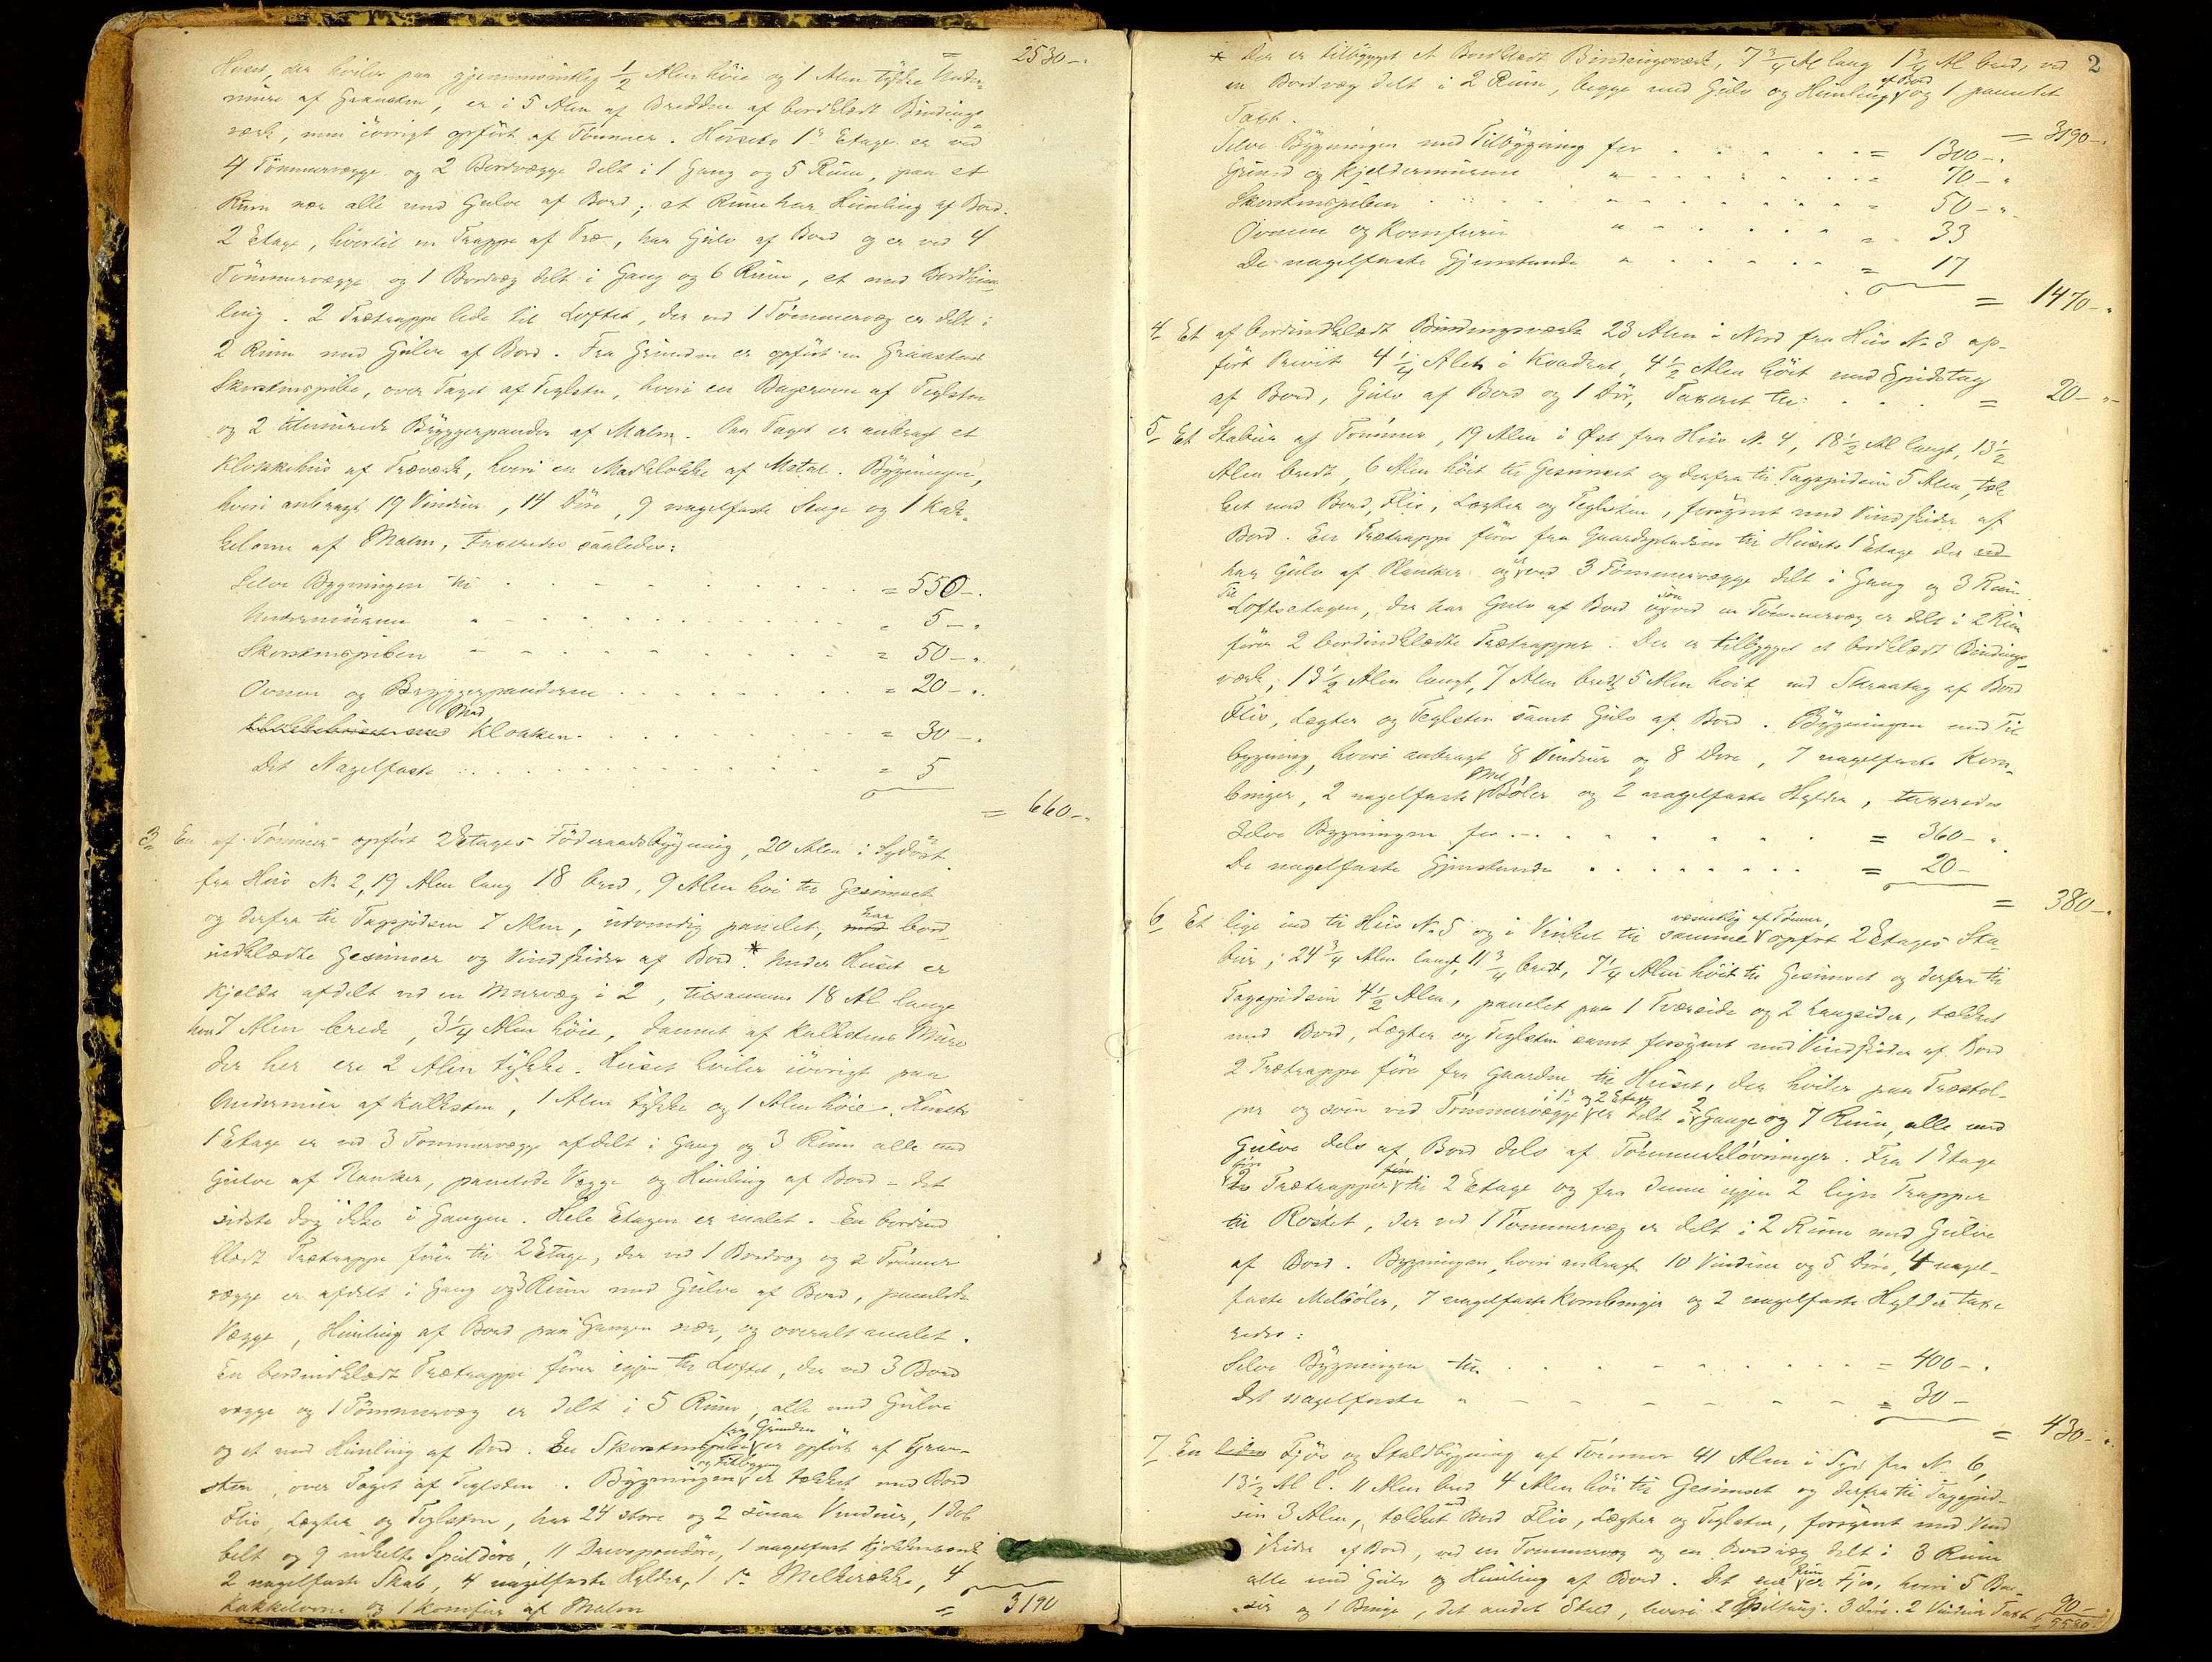 = 2530-.
Huset, der hviler paa gjennemsnitlig 1/2 Alen høie og 1 Alen tykke Under-
mure af Graasten, er i 5 Alen af Bredden af bordklædt Bindings-
værk, men iøvrigt opført af Tømmer. Husets 1ste Etage er ved
4 Tømmervægge og 2 Bordvægge delt i 1 Gang og 5 Rum, paa et
Rum nær alle med Gulve af Bord; et Rum har Himling af Bord.
2 Etage, hvortil en Trappe af Træ, har Gulv af Bord og er ved 4
Tømmervægge og 1 Bordvæg delt i Gang og 6 Rum, et med Bordhim-
ling. 2 Trætrappe lede til Loftet, der ved 1 Tømmervæg er delt i
2 Rum med Gulve af Bord. Fra Grunden er opført en Graastens
Skorstenspibe, over Taget af Teglsten, hvori en Bagerovn af Teglsten
og 2 indmurede Bryggerpander af Malm. Paa Taget er anbragt et
Klokkehus af Træværk, hvori en Madklokke af Metal. Bygningen,
hvori anbragt 19 Vinduer, 14 Døre, 9 nagelfaste Senge og 1 Kak-
kelovn af Malm, Taxeredes saaledes:
Selve Bygningen til = 550-.
Undermurene " = 5-.
Skorstenspiben - = 50-.
Ovnen og Bryggerpanderne = 20-.
Klokkehuset med Mad Klokken = 30-.
Det Nagelfaste = 5
= 660-.
3. En af Tømmer opført 2 Etages Føderaadsbygning, 20 Alen i Sydøst
fra Hus No 2, 19 Alen lang 18 bred, 9 Alen høi til Gesimset
og derfra til Tagspidsen 7 Alen, udvendig panelet, med har bord-
indklædte Gesimser og Vindskeder af Bord.* Under Huset er
Kjelder afdelt ved en Murvæg i 2, tilsammen 18 Al. lange
7 Alen brede, 3 1/4 Alen høie, dannet af Kalkstens Mure
der her ere 2 Alen tykke. Huset hviler iøvrigt paa
Undermur af Kalksten, 1 Alen tykke og 1 Alen høie. Husets
1 Etage er ved 3 Tømmervægge afdelt i Gang og 3 Rum alle med
Gulve af Planker, panelede Vægge og Himling af Bord - det
sidste dog ikke i Gangen. Hele Etagen er malet. En bordind
klædt Trætrappe fører til 2 Etage, der ved 1 Bordvæg og 2 Tømmer
vægge er afdelt i Gang og 3 Rum med Gulve af Bord, panelede
Vægge, Himling af Bord paa Gangen nær, og overalt malet.
En bordindklædt Trætrappe fører igjen til Loftet, der ved 3 Bord
vægge og 1 Tømmervæg er delt i 5 Rum, alle med Gulve
og et med Himling af Bord. En Skorstenspibe fra Grunden er opført af Graa-
sten, over Taget af Teglsten. Bygningen og Tilbygning er tækket med Bord
Flis, Lægter og Teglsten, har 24 store og 2 smaa Vinduer, 1 dob
belt og 9 enkelte Speildøre, 11 1 nagelfast
2 nagelfaste Skab, 4 nagelfaste Hylder, 1 do Melkerække, 4
Kakkelovne og 1 Komfur af Malm = 3190
2
* Der er tilbygget et Bordklædt Bindingsværk, 7 3/4 Al lang 1 3/4 Al bred, ved
en Bordvæg delt i 2 Rum, begge med Gulv og Himling af Bord og 1 panelet
= 3190-.
Selve Bygningen med Tilbygning for = 1300-.
Grund og Kjeldermurene " = 70-.
Skorstenspiben " = 50-.
Ovnene og Komfuren " = 33
De nagelfaste Gjenstande " = 17
= 1470-.
4. Et af bordindklædt Bindingsværk 23 Alen i Nord fra Hus No 3 op-
ført Privit 4 1/4 Alen i Kvadrat, 4 1/2 Alen høit med Spidstag
af Bord, Gulv af Bord og 1 Dør, Taxeret til = 20-.
5. Et Stabur af Tømmer, 19 Alen i Øst fra Hus No 4, 18 1/2 Al langt, 13 1/2
Alen bredt, 6 Alen høit til Gesimset og derfra til Tagspidsen 5 Alen, tæk
ket med Bord, Flis, Lægter og Teglsten, forsynet med Vindskeder af
Bord. En Trætrappe fører fra Gaardspladsen til Husets 1 Etage der ved
har Gulv af Planker og er ved 3 Tømmervægge delt i Gang og 3 Rum.
Til Loftsetagen, der har Gulv af Bord og som ved en Tømmervæg er delt i 2 Rum
fører 2 bordindklædte Trætrapper. Der er tilbygget et bordklædt Bindings-
værk, 13 1/2 Alen langt, 7 Alen bredt 5 Alen høit med Skraatag af Bord
Flis, Lægter og Teglsten samt Gulv af Bord. Bygningen med Til
bygning, hvori anbragt 8 Vinduer og 8 Døre, 7 nagelfaste Korn-
binger, 2 nagelfaste Mel Bøler og 2 nagelfaste Hylder, taxeredes
Selve Bygningen for = 360-.
De nagelfaste Gjenstande = 20-
= 380-.
6. Et lige ind til Hus No 5 og i Vinkel til samme væsentlig af Tømmer opført 2 Etages Sta-
bur, 24 3/4 Alen langt, 11 3/4 bredt, 7 1/4 Alen høit til Gesimset og derfra til
Tagspidsen 4 1/2 Alen, panelet paa 1 Tværside og 2 Langsider, tækket
med Bord, Lægter og Teglsten samt forsynet med Vindskeder af Bord
2 Trætrappe føre fra Gaarden til Huset, der hviler paa Træstol-
per og som ved Tømmervægge i 1ste og 2 Etage er delt i 2 Gange og 7 Rum, alle med
Gulve dels af Bord dels af Tømmerkløvninger. Fra 1 Etage
føre 2 Trætrapper til 2 Etage og fra denne igjen 2 lign Trapper
til Røstet, der ved 1 Tømmervæg er delt i 2 Rum med Gulve
af Bord. Bygningen, hvori anbragt 10 Vinduer og 5 Døre, 4 nagel-
faste Melbøler, 7 nagelfaste Kornbinger og 2 nagelfaste Hylder taxe
redes:
Selve Bygningen til = 400-.
Det nagelfaste " = 30-
= 430-.
7. En Fjøs og Staldbygning af Tømmer 41 Alen i Syd fra No 6,
13 1/2 Al l. 11 Alen bred 4 Alen høi til Gesimset og derfra til Tagspid-
sen 3 Alen, tækket med Bord Flis, Lægter og Teglsten, forsynet med Vind
skeder af Bord, ved en Tømmervæg og en Bordvæg delt i 3 Rum
alle med Gulv og Himling af Bord. Det ene Rum er Fjøs, hvori 5 Baa-
ser og 1 Binge, det andet Stald, hvori 2 Spiltaug. 3 Døre. 2 Vinduer Taxt 90-
5580.